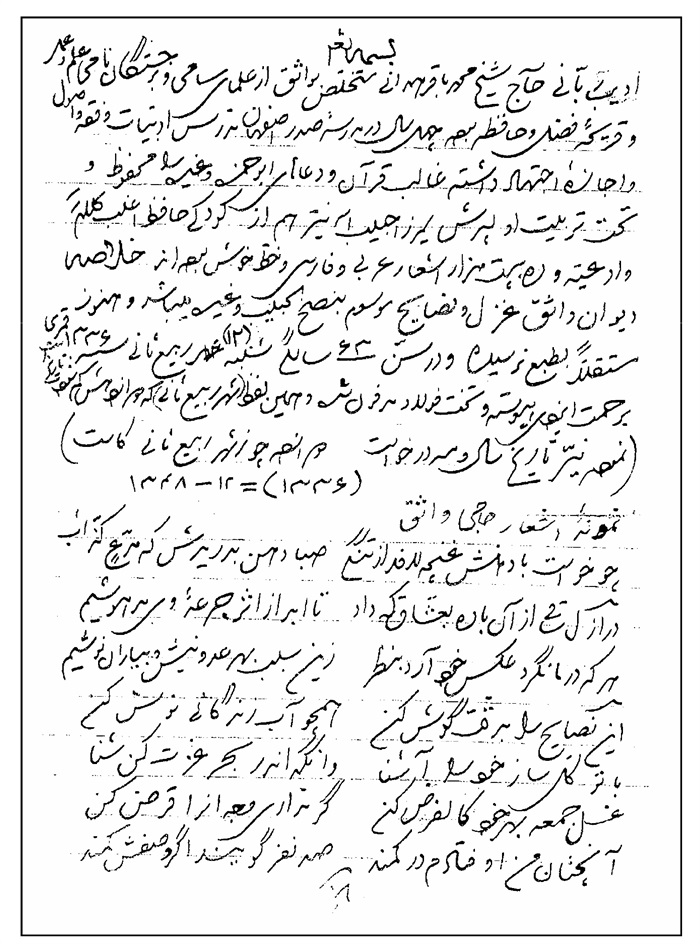 بسمه تعالی
ادیب ربانی حاج شیخ محمد باقر متخلص بواثق از علمای سامی و برجستگان نامی علم و عمل
و قریحهٔ فضل و حافظه بوده چهل سال در مدرسهٔ صدر اصفهان بتدریس ادبیات و فقه و اصول
و اجازهٔ اجتهاد داشته غالب قرآن و دعای ابوحمزه و غیره را محفوظ و
تحت تربیت او پسرش میرزا حبیب اله نیّر هم از کودکی حافظ اغلب کلام اله
و ادعیه و ده بیست هزار اشعار عربی و فارسی و خط خوش بوده از
دیوان واثق غزل و نصایح موسوم بنصح الحبیب و غیره میباشد و هنوز
مستقلاً بطبع نرسیده و در سنّ ۶۳ سالگی شنبه (۱۲) ربیع ثانی سنه ۱۳۳۶ قمری
برحمت ایزدی پیوسته و تخت فولاد مدفون شد و همین لفظ (شهر ربیع ثانی) که
نیّر تاریخ سال و مه درخواست چو ز شهر ربیع ثانی کاست)
۱۳۴۸ – ۱۲ = (۱۳۳۶)
نمونهٔ اشعار حاجی واثق
چو خواست با دهنش غنچه لاف از تنگی صبا دهن بدریدش که مدّعی کذّاب
در ازل می از آن باده بعشّاق که داد تا ابد از اثر جرعهٔ وی مدهوشیم
هر که در ما نگرد عکس خود آرد بنظر زین سبب بهر عدو نیش و بیاران نوشیم
این نصایح را بدقت گوش کن همچو آب زندگانی نوش کن
با توکل ساز خود را آشنا وانگه اندر بحر عزت کن شنا
غسل جمعه بهر خود کالفرض کن گر نداری وجه آنرا قرض کن
آنچنان من اوفتادم در کمند صد نفر گویند اگر وصفش کمند